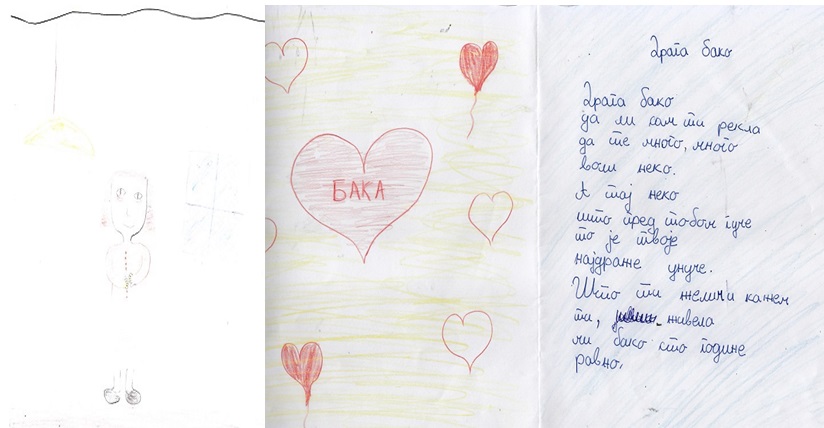 БАКА
Драга бако
Драга бако
да ли сам ти рекла
да те много, много
воли неко.
А тај неко
што пред тобом гуче
то је твоје
најдраже унуче.
Што ти желим и кажем
ти, живела
ми бако сто године
равно.